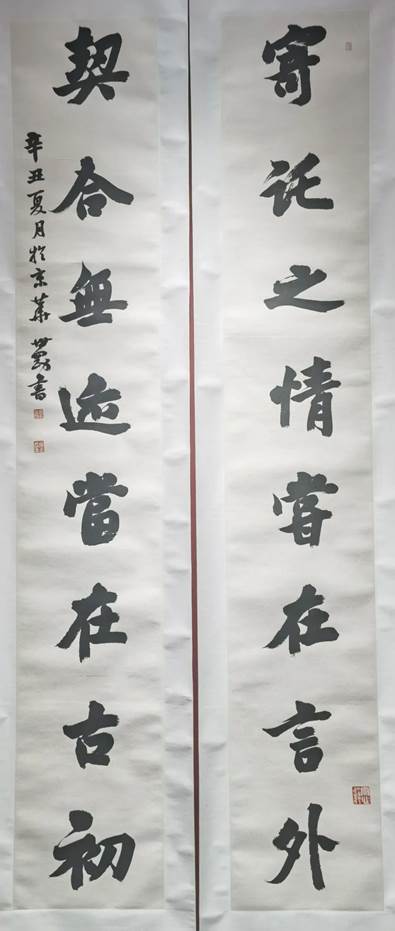 寄託之情嘗在言外
契合無迹當在古初
辛丑夏月於京華
書